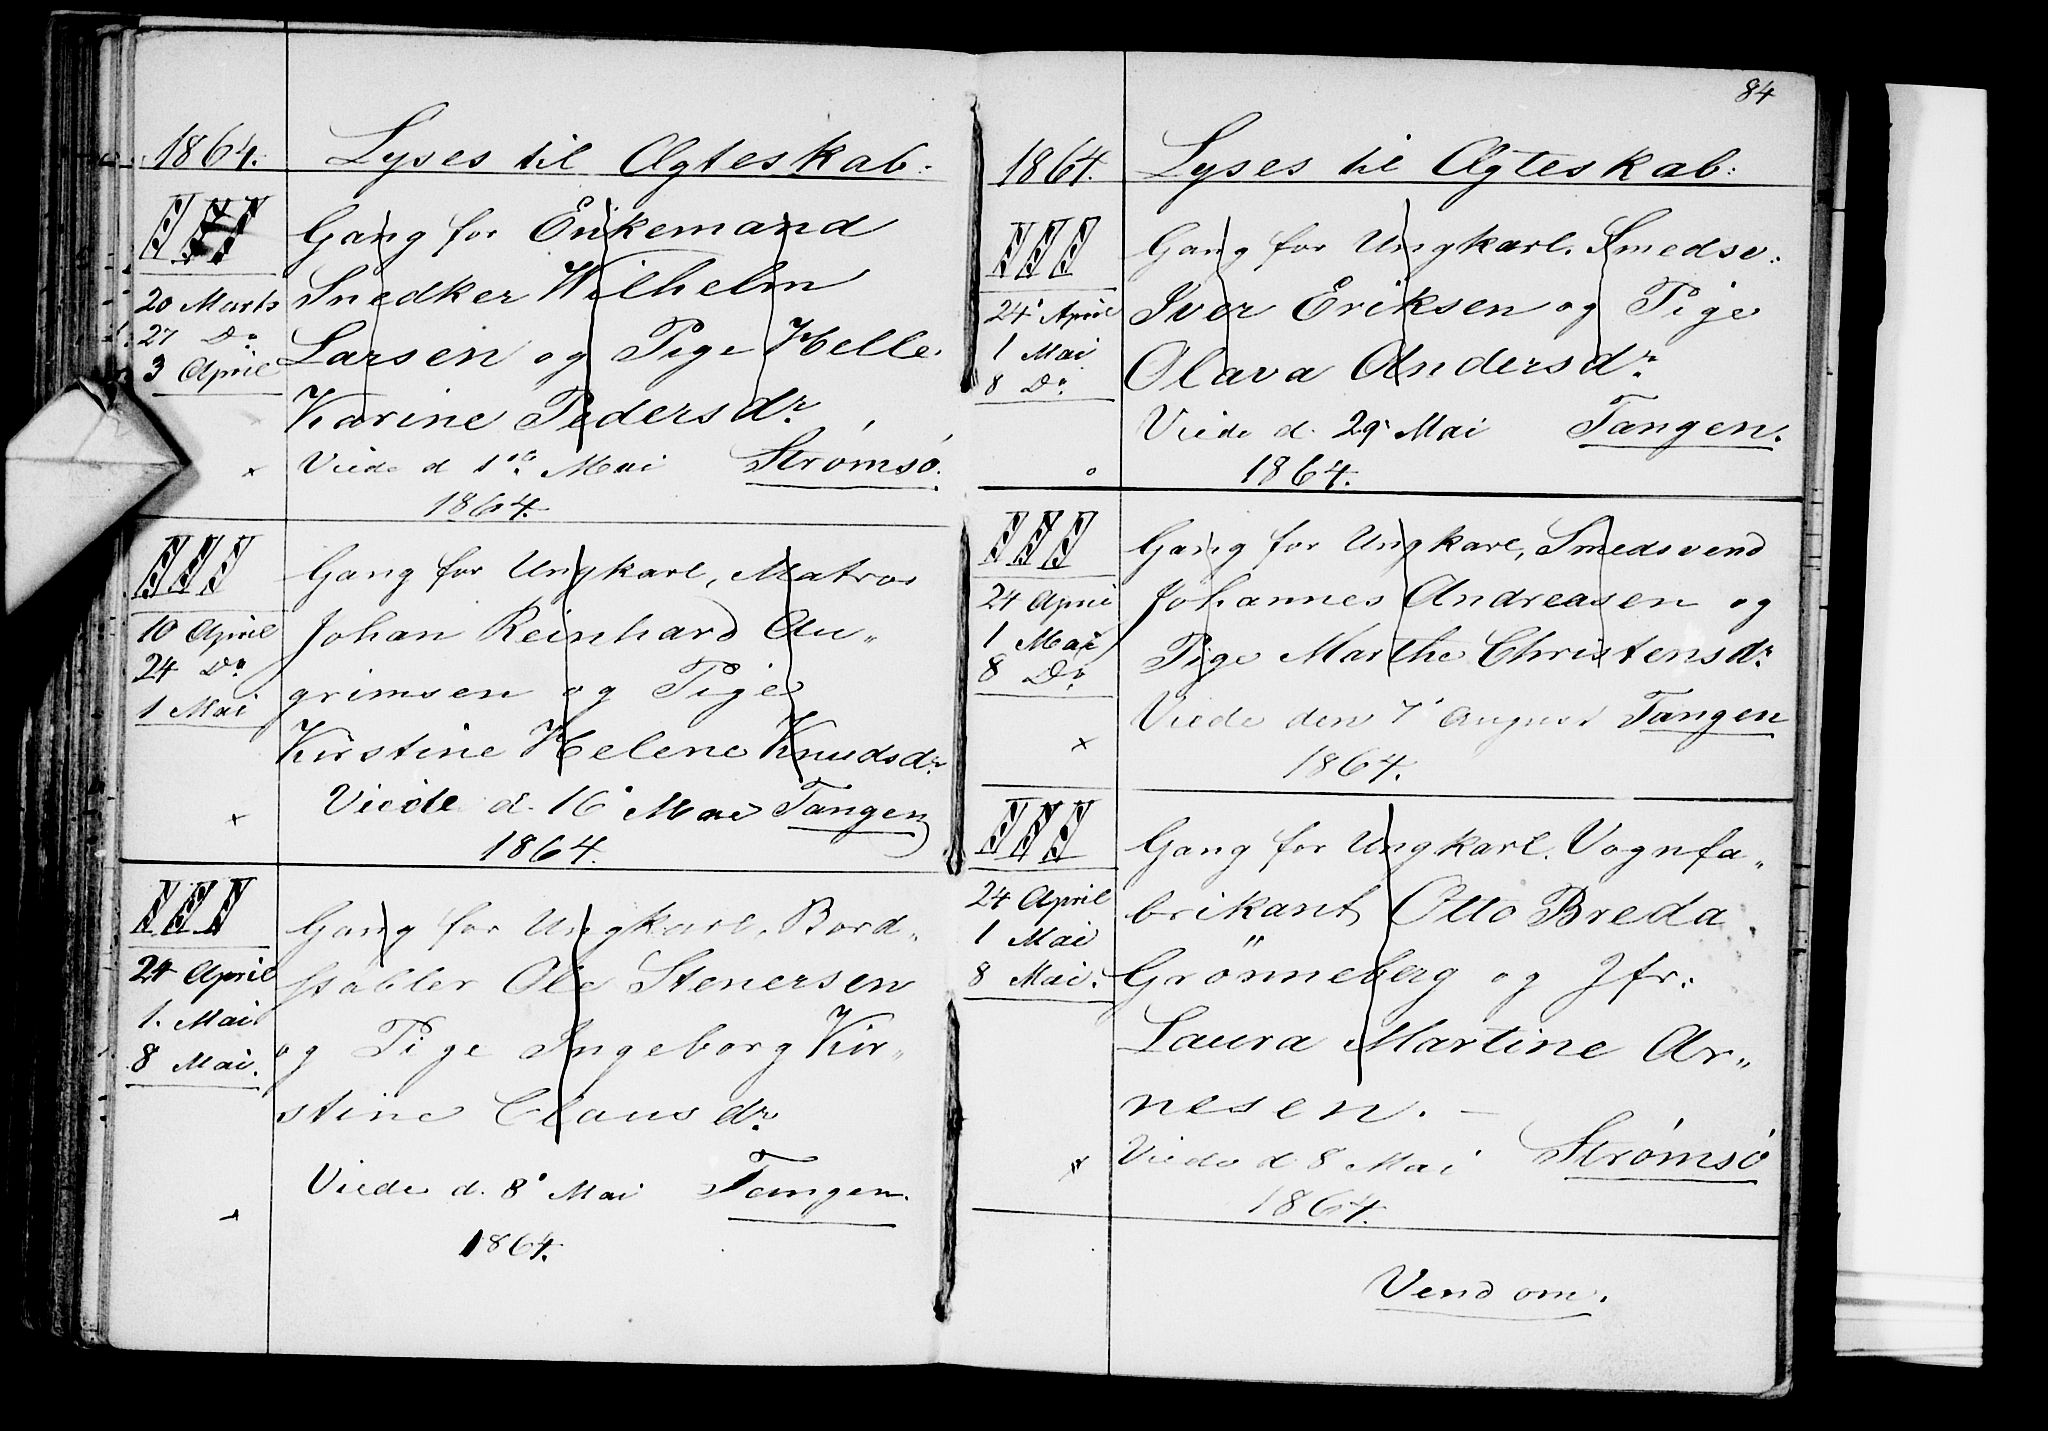 1864. Lyses til Ægteskab.
III Gang for Enkemand
20 Marts Snedker Wilhelm
27 Do Larsen og Pige Helle
3 April Karine Pedersdr.
Viede d 1ste Mai Strømsø.
1864.
III Gang for Ungkarl, Matros
10 April Johan Reinhard An„
24 Do grimsen og Pige
1 Mai Kirstine Helene Knudsdr.
Viede d. 16' Mai Tangen
1864.
III Gang for Ungkarl, Bord„
24 April stabler Ole Stenersen
1. Mai og Pige Ingeborg Kir„
8 Mai. stine Clausdr.
Viede d. 8' Mai Tangen.
1864.
84
1864. Lyses til Ægteskab.
III Gang for Ungkarl. Smedsv:
24' April Iver Eriksen og Pige
1 Mai Olava Andersdr.
8 Do Viede d. 29' Mai Tangen.
1864.
III Gang for Ungkarl, Smedsvend
24 April Johannes Andreasen og
1 Mai Pige Marthe Christensdr.
8 Do Viede den 7' August Tangen
1864.
III Gang for Ungkarl. Vognfa„
24 April brikant Otto Breda
1 Mai
8 Mai. Grönneberg og Jfr:
Laura Martine Ar„
nesen. —
Viede d 8 Mai Strømsø
1864.
Vend om.